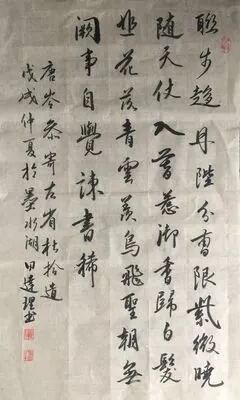 聯步趨丹陛分曹限紫微曉
隨天仗入暮惹御香歸白髮
悲花落青雲羨鳥飛聖朝無
闕事自覺諫書稀
唐岑參寄左省杜拾遺
戊戌仲夏於墨水湖田達理书